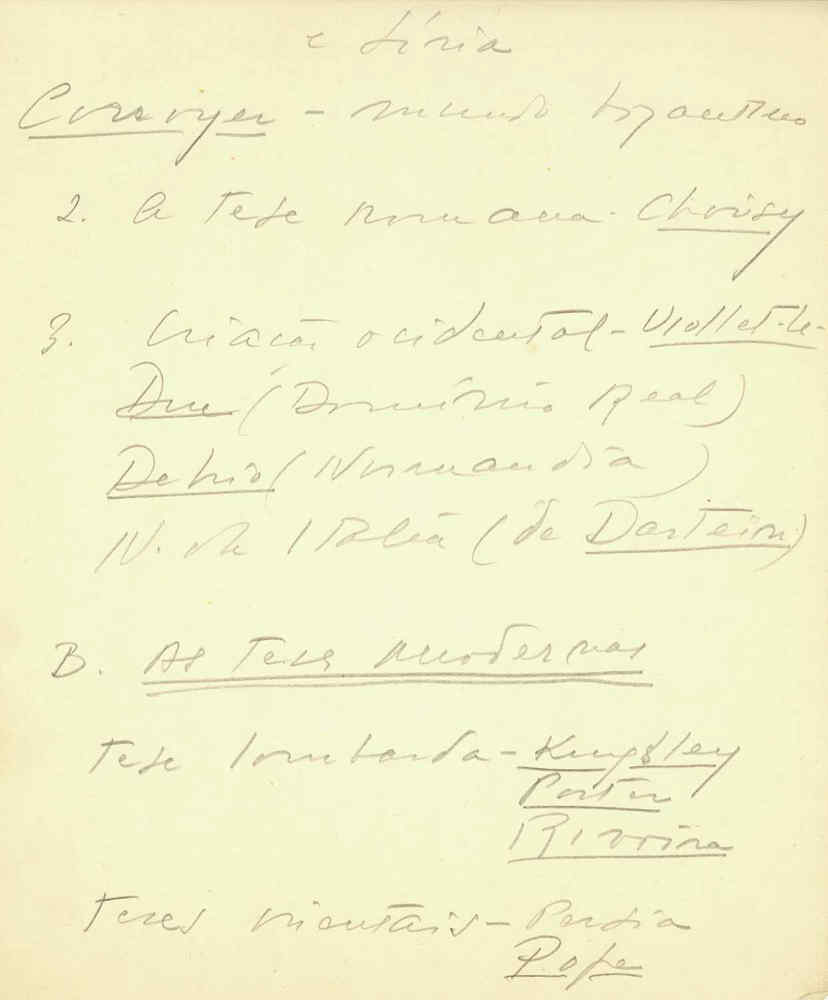 e Síria
Corroyer - mundo bizantino
2. A tese romana - Choisy
3. Criação ocidental - Viollet-le-
Duc (Domínio Real)
Dehio (Normandia)
N. da Itália (de Dartein)
B. As teses modernas
Tese lombarda - Kingsley
Porter
Rivoira
Teses orientais - Persia
Pope